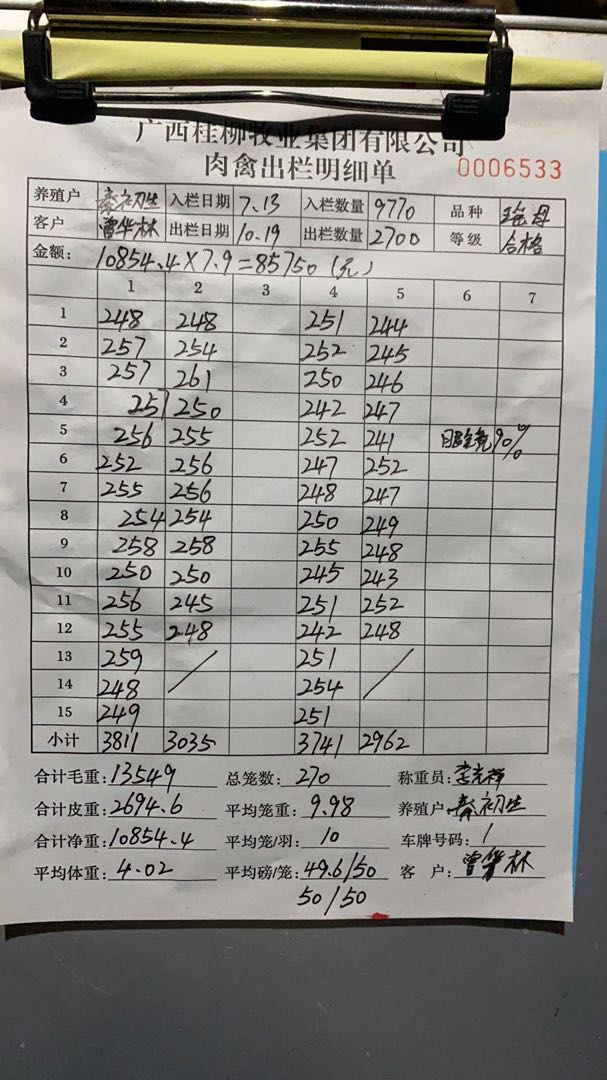 广西桂柳牧业集团有限公司
肉禽出栏明细单 0006533
养殖户 秦初生 入栏日期 7.13 入栏数量 9770 品种 瑶母
客户 曾华林 出栏日期 10.19 出栏数量 2700 等级 合格
金额: 10854.4×7.9=85750(元)
1 2 3 4 5 6 7
1 248 248 251 244
2 257 254 252 245
3 257 261 250 246
4 251 250 242 247
5 256 255 252 241 90%
6 252 256 247 252
7 255 256 248 247
8 254 254 250 249
9 258 258 255 248
10 250 250 245 243
11 256 245 251 252
12 255 248 242 248
13 259 251
14 248 254
15 249 251
小计 3811 3035 3741 2962
合计毛重:13549 总笼数:270 称重员:李光祥
合计皮重:2694.6 平均笼重:9.98 养殖户 秦初生
合计净重:10854.4 平均笼/羽:10 车牌号码:1
平均体重:4.02 平均磅/笼:49.6/50 客 户:曾华林
50/50